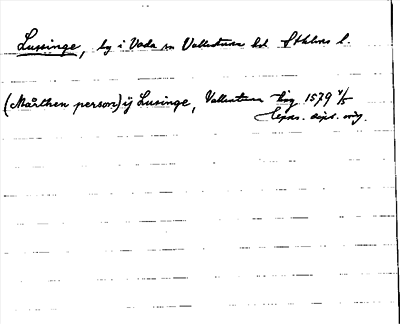 Lussinge, by i Vada sn Vallentuna hd Sthlms l.
(Mårthen person) ij Lusinge, Vallentuna 1579 4/5
orig.